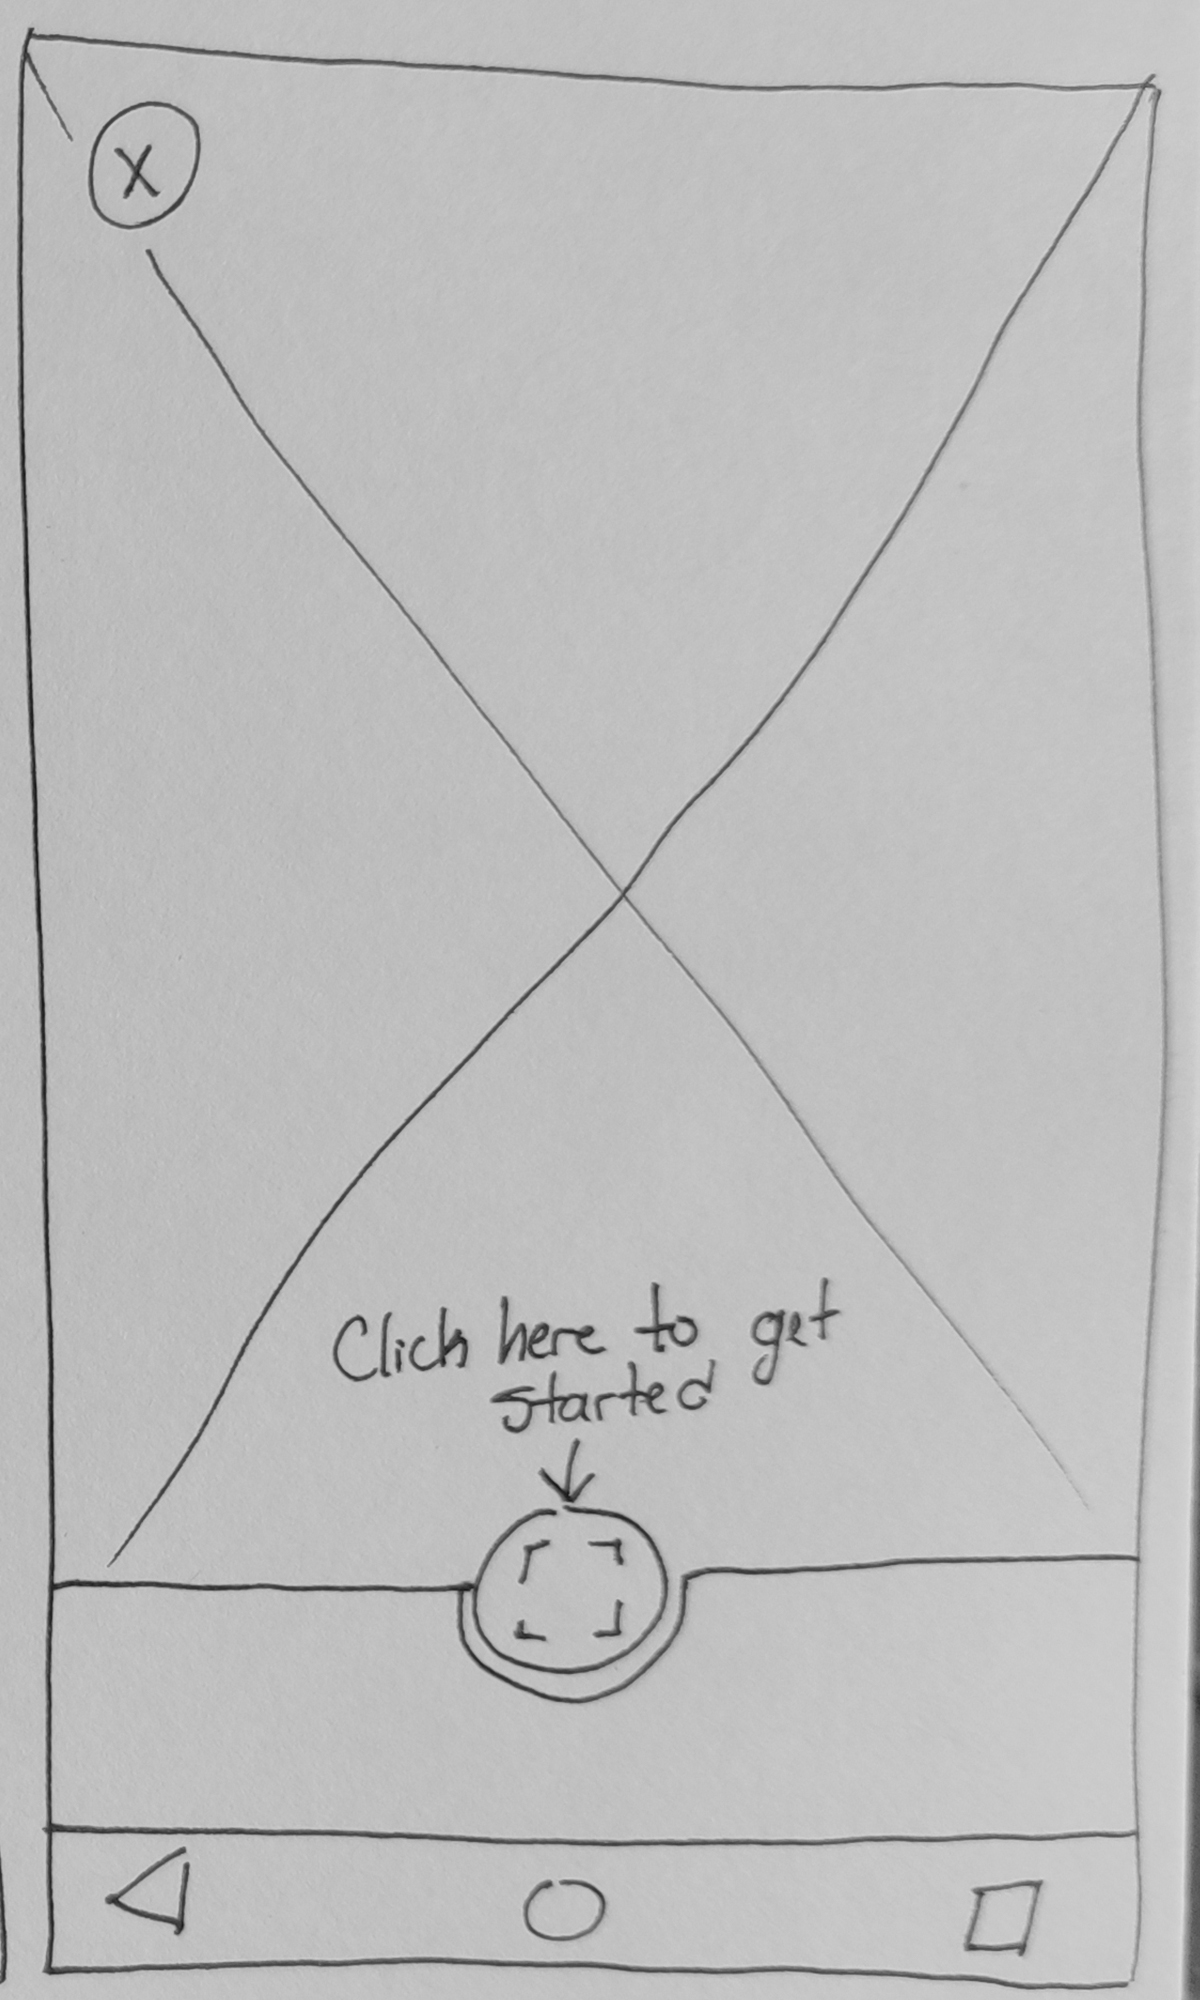 X
Click here to get
started